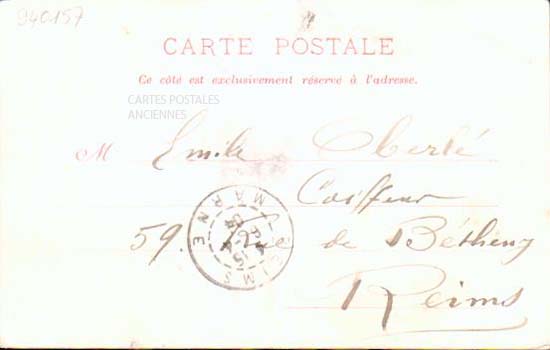 940157
CARTE POSTALE
Ce côté est exclusivement réservé à l'adresse.
CARTES POSTALES
ANCIENNES
M Emile Oberlé
Coiffeur
59. Rue de Bétheny
Reims
REIMS
MARNE